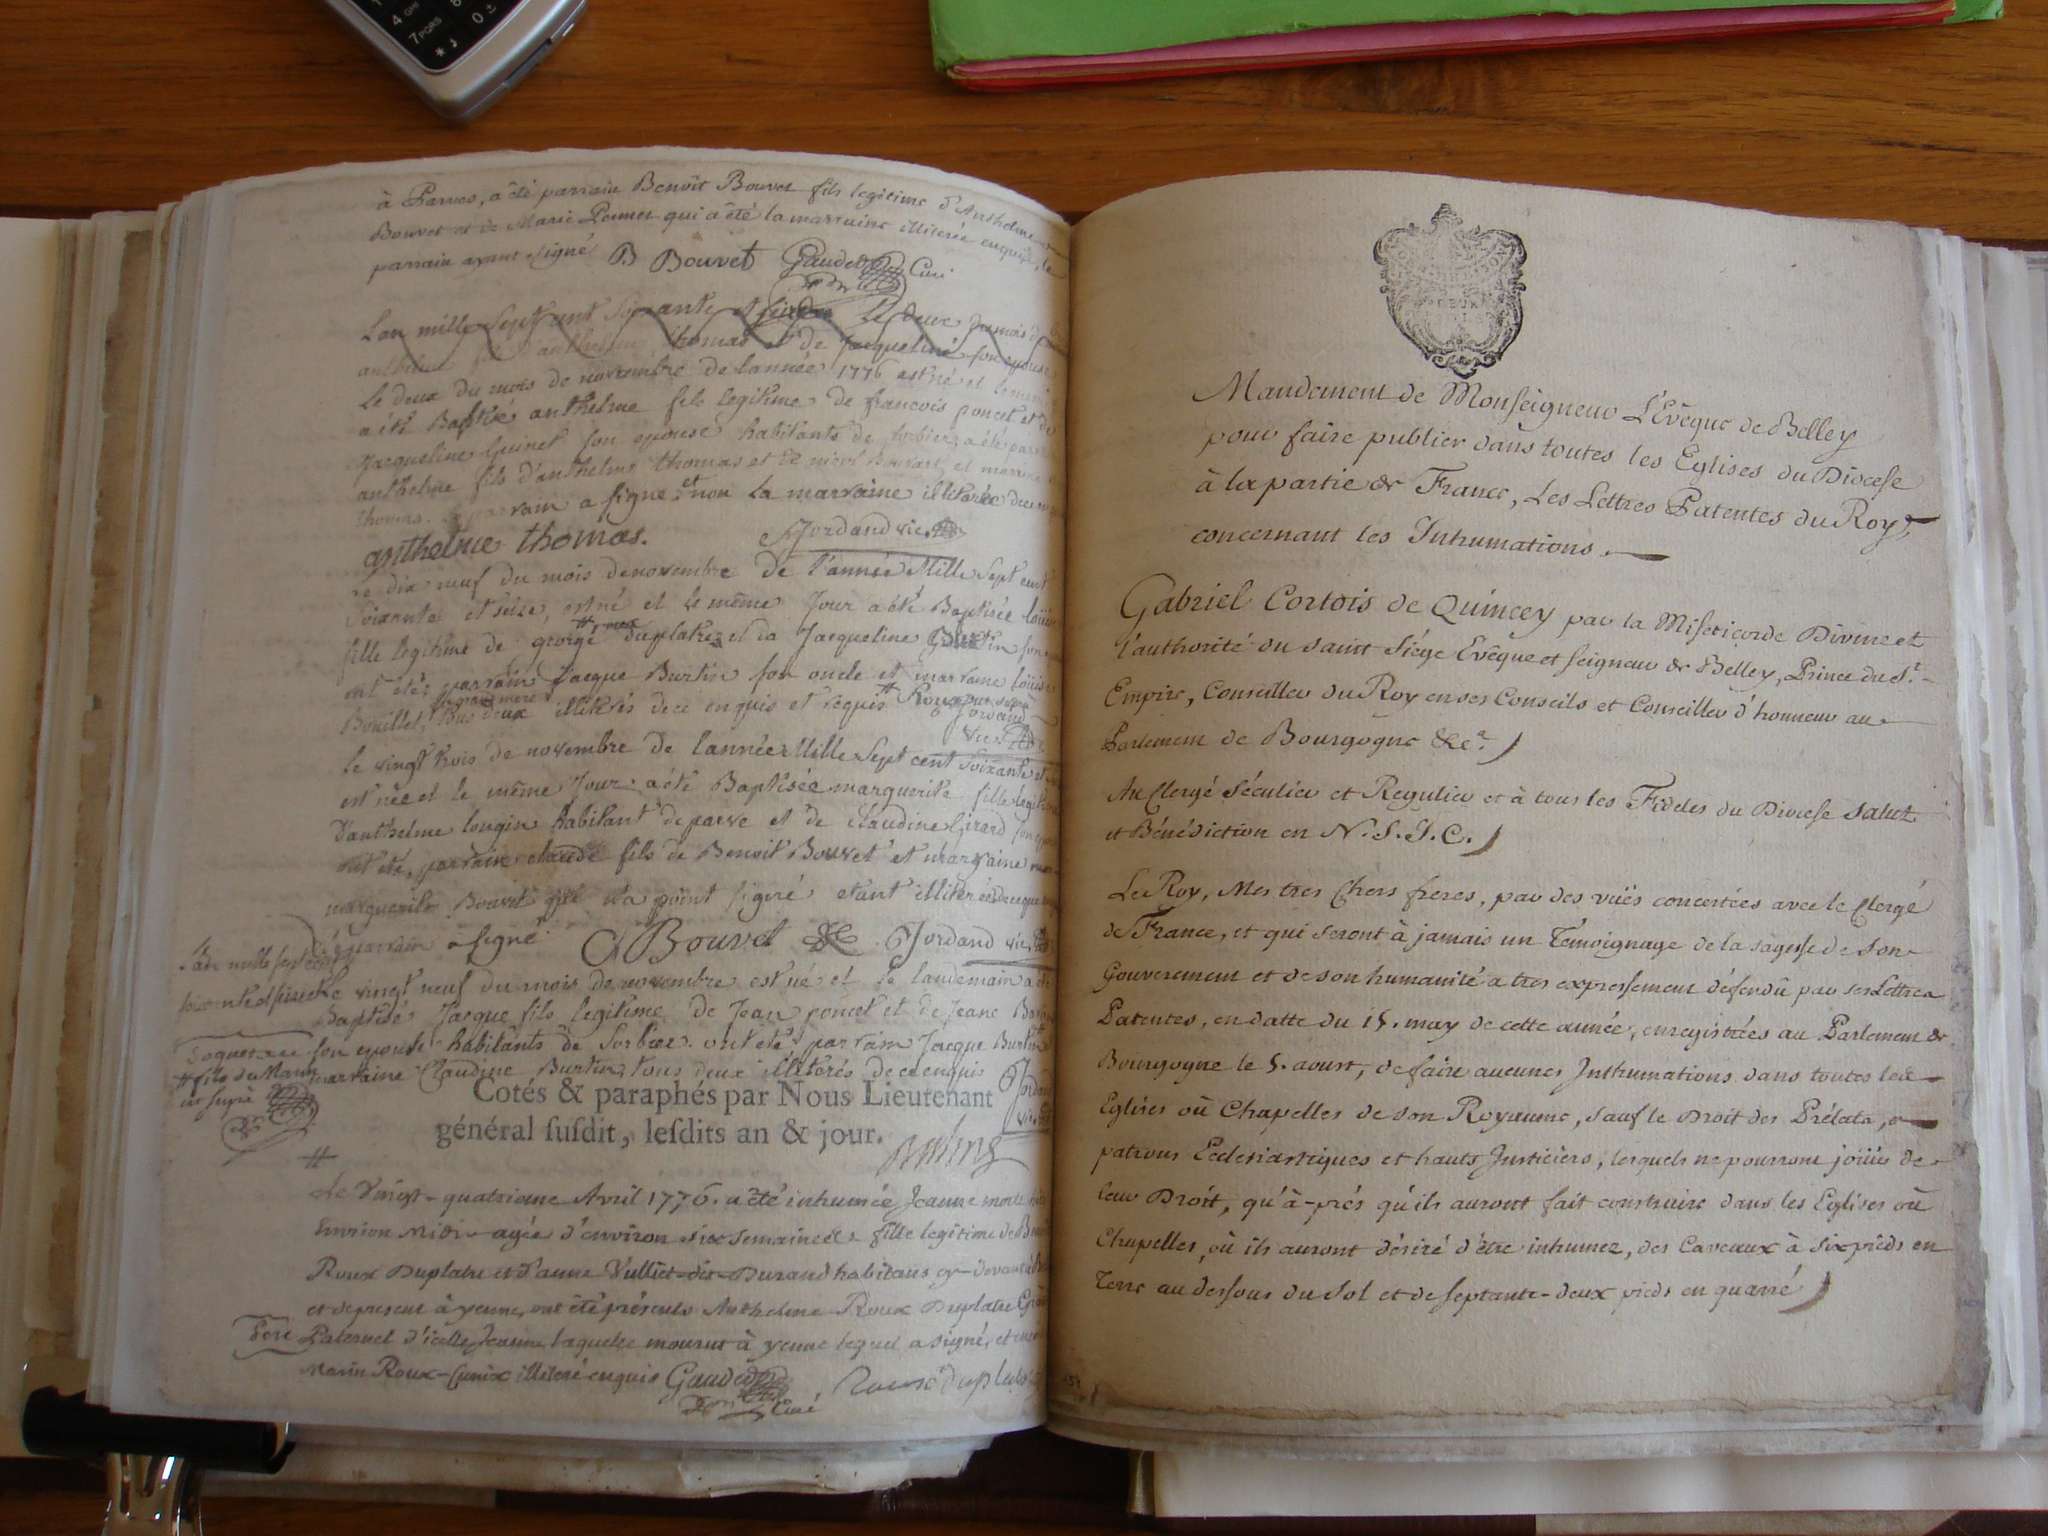 à Parves, a été parrain Benoît Bouvet fils legitime d'Anthelme
Bouvet et de Marie Peinet qui a été la marraine illiterée enquise, le
parrain ayant signé B Bouvet Gaudet Curé
L'an mille sept cent soixante et seize le deux du mois de
anthelme fils d'anthelme thomas et de jacqueline son epouse
le deux du mois de novembre de l'année 1776 est né et le même
a été Baptisé anthelme fils legitime de francois poncet et de
Jacqueline Guinet son epouse habitants de sorbier a été parrain
anthelme fils d'anthelme thomas et de et marraine
thomas. le parrain a signé et non la marraine illiterée
anthelme thomas. Jordand vic.
le dix neuf du mois de novembre de l'année Mille Sept cent
Soixante et seize, est né et le même Jour a été Baptisée louise
fille legitime de george duplatre et da Jacqueline Burtin son
ont étés parrain Jacque Burtin son oncle et marraine louise
Bouillet, sa grand mere tous deux illiterés de ce enquis et requis # Roux pour supra
Jordand
vic.
le vingt trois de novembre de l'année Mille Sept cent Soixante et
est née et le même Jour a été Baptisée marguerite fille legitime
d'anthelme longin habitant de parve et de Claudine Girard son epouse
ont été, parrain claude fils de Benoit Bouvet et marraine
marguerite Bouvet qui n'a point signé etant illiterée de ce enquise
le parrain a signé C Bouvet & Jordand vic.
L'an mille sept cent
soixante et seize le vingt neuf du mois de novembre est né et le landemain a été
Baptisé Jacque fils legitime de Jean poncet et de Jeane
son epouse habitants de Sorbier. ont étés parrain Jacque Burtin #
marraine Claudine Burtin, tous deux illiterés de ce enquis Jordand
vic.
# fils de Marin
ut supra
Cotés & paraphés par Nous Lieutenant
général susdit, lesdits an & jour.
#
Le Vingt-quatrieme Avril 1776. a été inhumée Jeanne morte
Environ Midi agée d'environ six semaines fille legitime de
Roux Duplatre et d'anne Vulliet dit Durand habitans cy-devant à
et de present à yenne, ont été présents Anthelme Roux Duplatre Grand
Pere Paternel d'icelle Jeanne laquelle mourut à yenne lequel a signé, et
Marin Roux-Cunix illiteré enquis Gaudet Roux Duplatre
Curé
Mandement de Monseigneur L'Evêque de Belley
pour faire publier dans toutes les Eglises du Diocese
à la partie de France, Les Lettres Patentes du Roy,
concernant les Inhumations.
Gabriel Cortois de Quincey par la Misericorde Divine et
l'authorité du saint Siége Evêque et seigneur de Belley, Prince du St.
Empire, Conseiller du Roy en ses Conseils et Conseiller d'honneur au
Parlement de Bourgogne &ca.
Au Clergé Séculier et Regulier et à tous les Fideles du Diocese salut
et Bénédiction en N.S.J.C.
Le Roy, Mes tres Chers freres, par des vuës concertées avec le Clergé
de France, et qui seront à jamais un Témoignage de la sagesse de son
Gouverement et de son humanité a tres expressement défendû par ses Lettres
Patentes, en datte du 15. may de cette année, enregistrées au Parlement de
Bourgogne le 5. aoust, de faire aucunes Inhumations dans toutes les
Eglises où Chapelles de son Royaume, sauf le Droit des Prélats,
patrons Ecclesiastiques et hauts Justiciers, lesquels ne pourront joüir de
leur Droit, qu'à-prés qu'ils auront fait construire dans les Eglises où
Chapelles, où ils auront désiré d'être inhumez, des Caveaux à six pieds en
Terre au dessous du sol et de septante-deux pieds en quarré